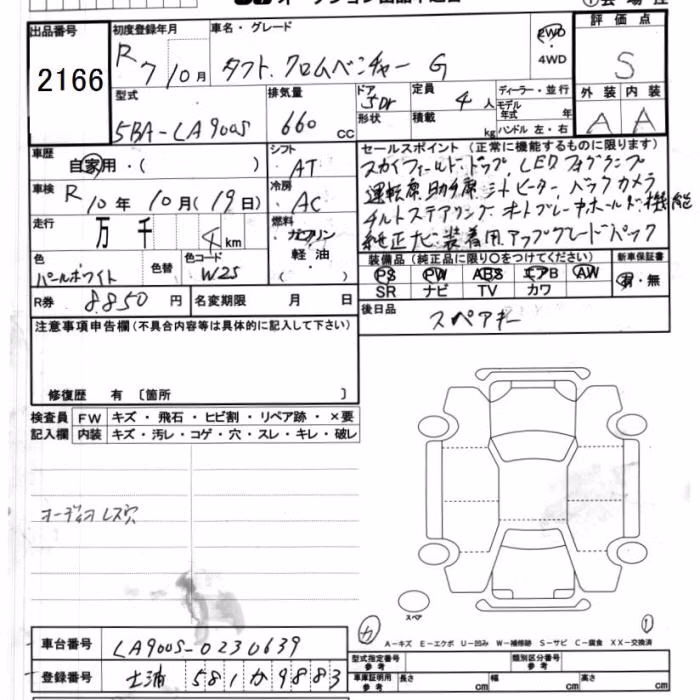 出品番号 初度登録年月 車名・グレード 評価点
2166 R7 10月 タフト.クロムベンチャー G 2WD ・ 4WD S
型式 排気量 ドア 5Dr 定員 4人 ディーラー・並行 外装 内装
5BA-LA900S 660 cc 形状 積載 kg モデル年式 年 ハンドル 左・右 A A
車歴 シフト セールスポイント (正常に機能するものに限ります)
自家用・( ) AT スカイフィールドトップ, LEDフォグランプ
車検 R10年 10月(19日) 冷房 AC 運転席助手席シートヒーター バックカメラ
走行 万 千 4km 燃料 ガソリン チルトステアリング. オートブレーキホールド機能
軽油 ( ) 純正ナビ装着用アップグレードパック
色 パールホワイト 色替 色コード W25
装備品 (純正品に限り○をつけてください) 新車保証書
PS PW ABS エアB AW 有・無
SR ナビ TV カワ
R券 8.850円 名変期限 月 日 後日品 スペアキー
注意事項申告欄(不具合内容等は具体的に記入して下さい)
修復歴 有 〔箇所 〕
検査員 FW キズ・飛石・ヒビ割・リペア跡・×要
記入欄 内装 キズ・汚レ・コゲ・穴・スレ・キレ・破レ
オーディオレス穴
スペア
A-キズ E-エクボ U-凹み W-補修跡 S-サビ C-腐食 XX-交換済
車台番号 LA900S-0230639
型式指定番号 参考 類別区分番号 参考
登録番号 土浦 581 か 9883
車庫証明用 参考 長さ cm 幅 cm 高さ cm